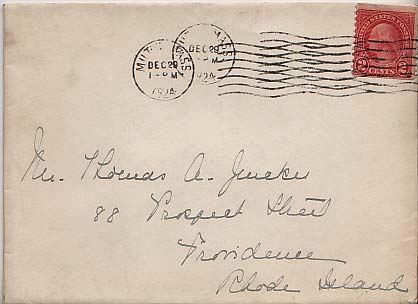 MASS
DEC 29
MASS
DEC 29
1 - PM
1924
UNITED STATES POSTAGE
2 CENTS 2
Mr. Thomas A.
88 Prospect Street
Providence
Rhode Island